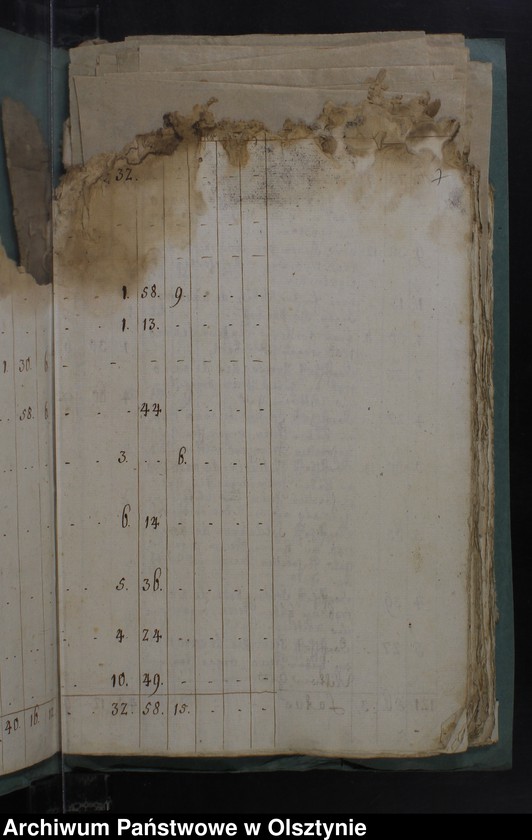 32. 7
1. 58. 9.
1. 13.
1. 30. 6
44
58. 6
3. . . 6.
6. 14
5. 36.
4. 24
10. 49.
32. 58. 15.
40. 16.
Archiwum Państwowe w Olsztynie